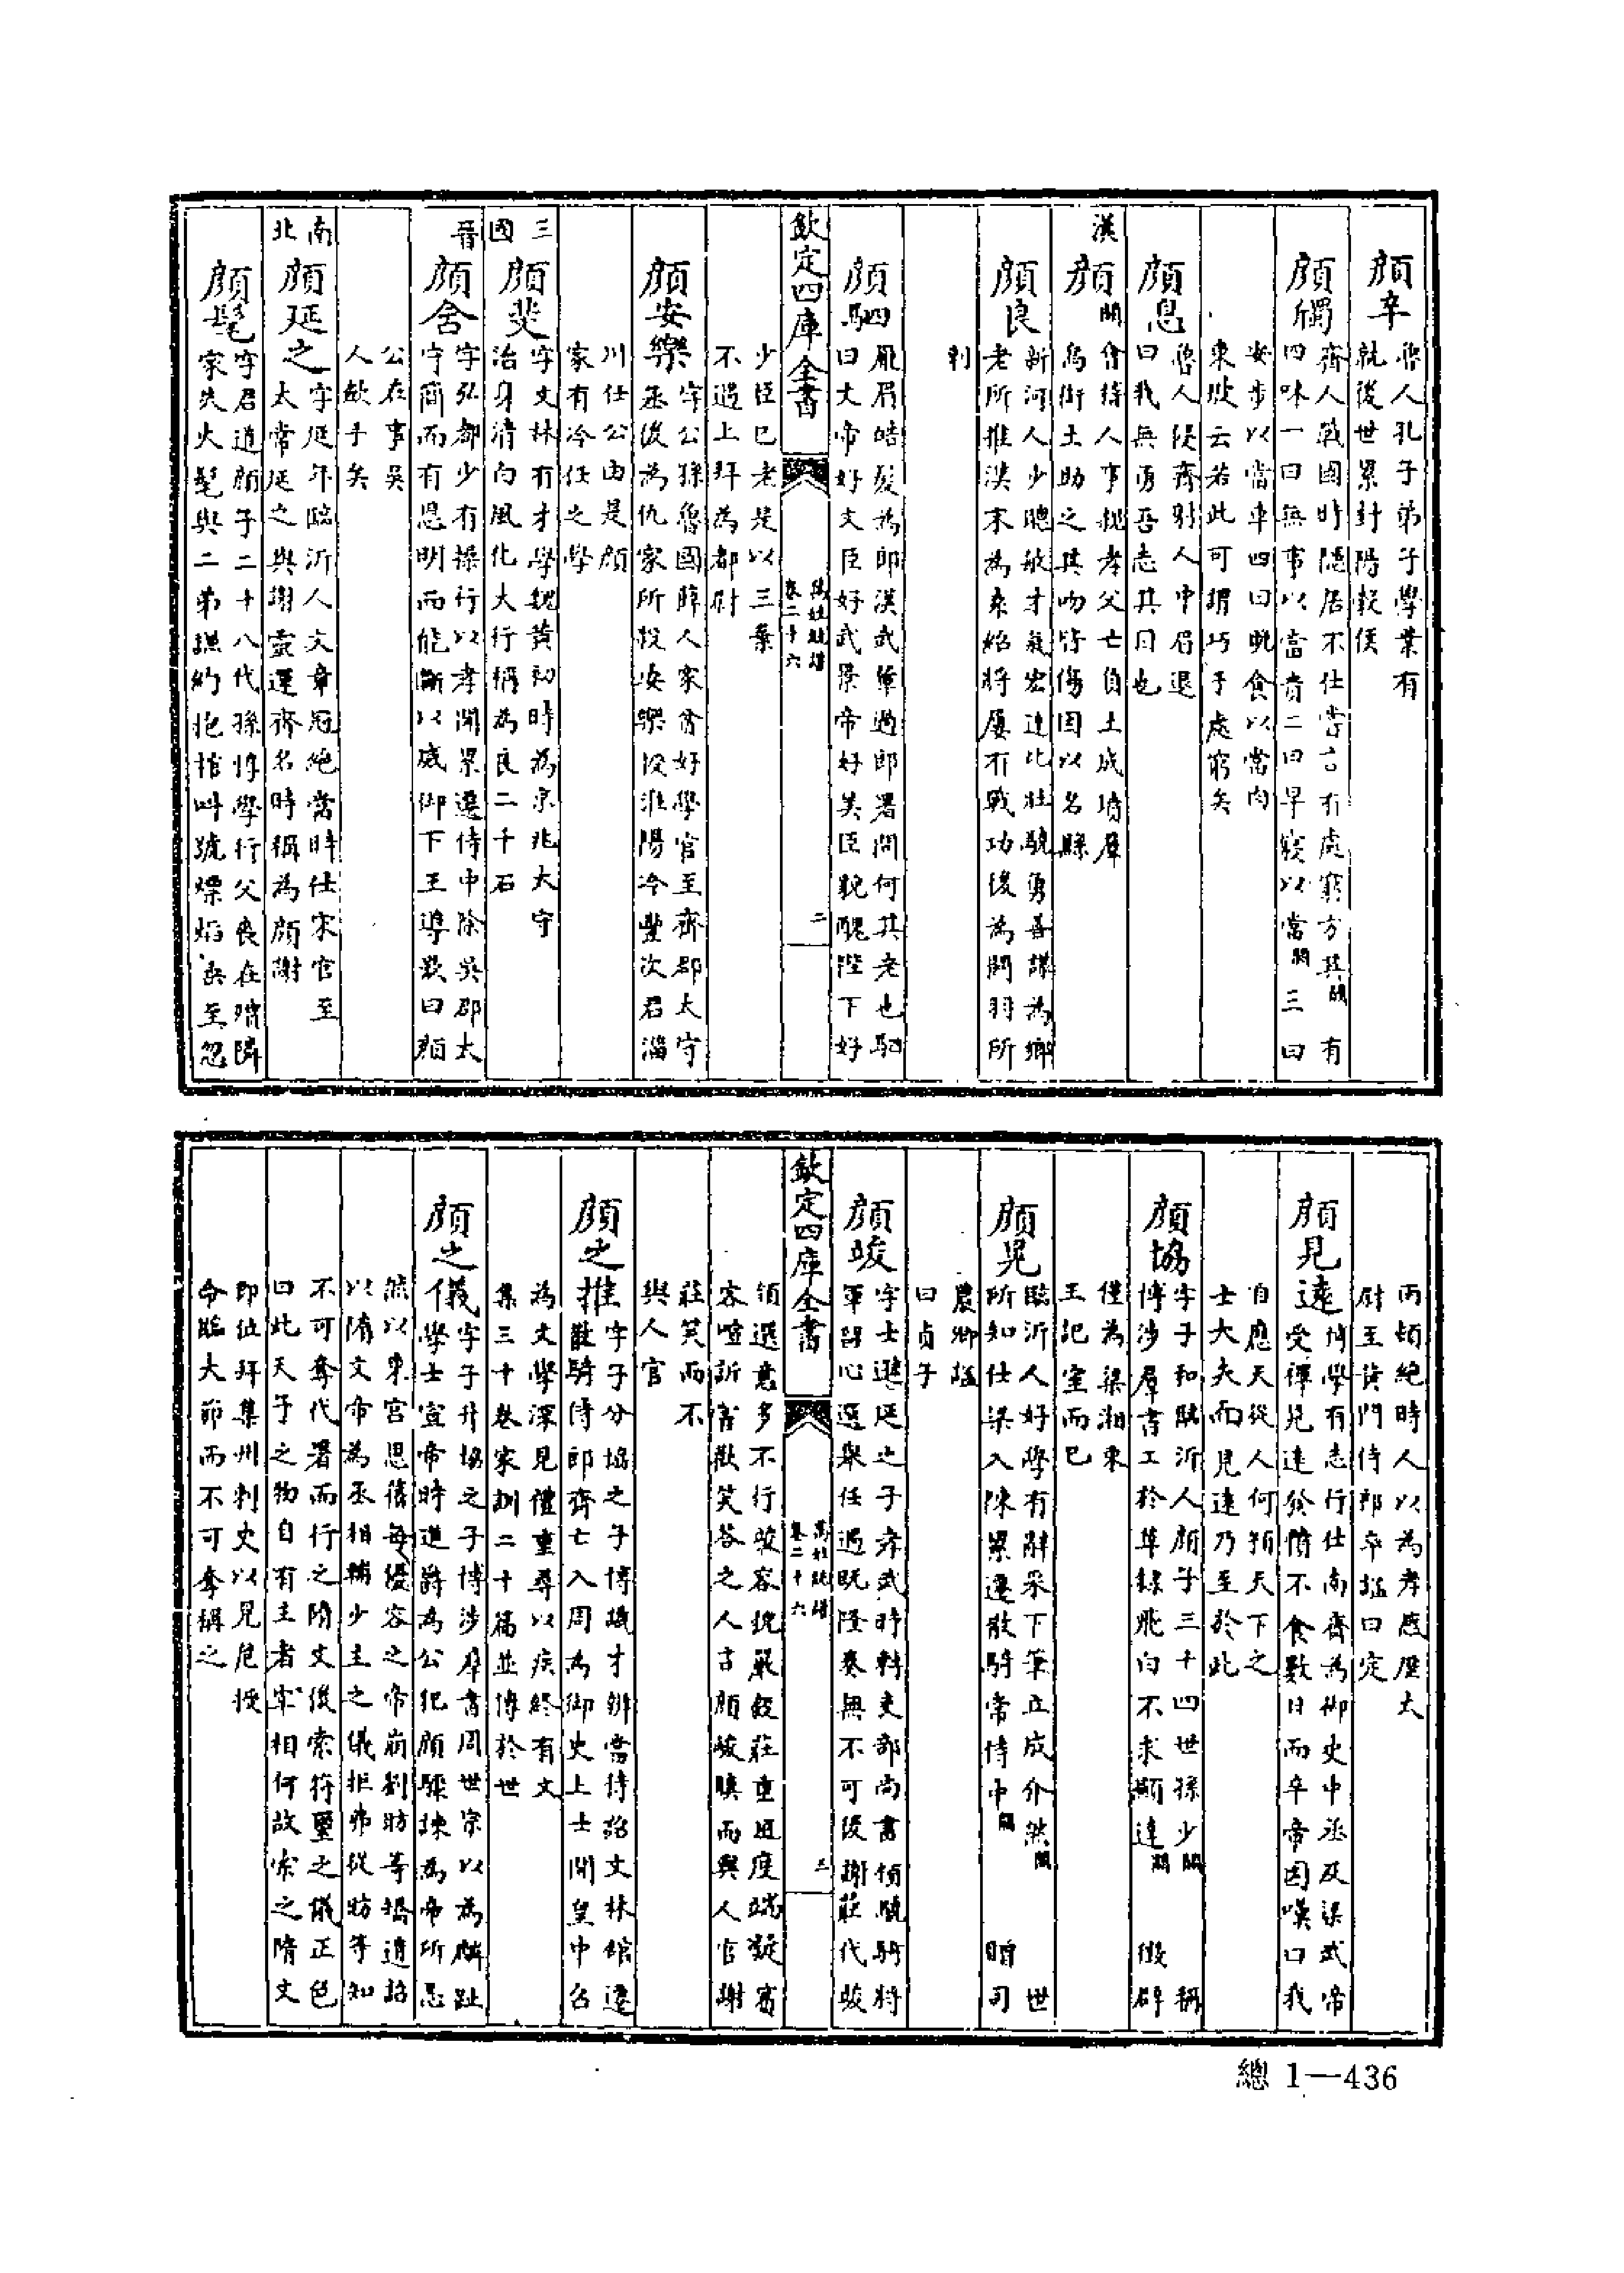 顔辛 魯人孔子弟子學業有
就後世累封陽穀侯
顔斶 齊人戰國時隠居不仕嘗言有處窮方其闕有
四味一曰無事以當貴二曰早寢以當闕三曰
安步以當車四曰晚食以當肉
東坡云若此可謂巧于處窮矣
顔息 魯人侵齊射人中眉退
曰我無勇吾志其目也
漢
顔闕 㑹稽人事親孝父亡負土成墳羣
烏銜土助之其吻皆傷因以名縣
顔良 新河人少聰敏才氣宏達比壯驍勇善謀為鄉
老所推漢末為袁紹將屢有戰功後為闗羽所
刺
顔駟 厖眉皓髮為郎漢武輦過郎署問何其老也駟
曰文帝好文臣好武景帝好美臣貌醜陛下好
欽定四庫全書
萬姓統譜
卷二十六
二
少臣已老是以三葉
不遇上拜為都尉
顔安樂 字公孫魯國薛人家貧好學官至齊郡太守
丞後為仇家所殺安樂授淮陽冷豐次君淄
川任公由是顔
家有冷任之學
三國
顔斐 字文林有才學魏黄初時為京兆太守
治身清向風化大行稱為良二千石
晉
顔含 字弘都少有操行以孝聞累遷侍中除吳郡太
守簡而有恩明而能斷以威御下王導歎曰顔
公在事吳
人歛手矣
南北
顔延之 字延年臨沂人文章冠絶當時仕宋官至
太常延之與謝靈運齊名時稱為顔謝
顔髦 字君道顔子二十八代孫惇學行父喪在殯隣
家失火髦與二弟謙約抱棺叫號熛焰垂至忽
而頓絶時人以為孝感歴太
尉至黄門侍郎卒諡曰定
顔見逺 博學有志行仕南齊為御史中丞及梁武帝
受禪見逺發憤不食數日而卒帝因嘆曰我
自應天從人何預天下之
士大夫而見逺乃至於此
顔協 字子和臨沂人顔子三十四世孫少闕稱
博涉羣書工於草𨽻飛白不求顯達闕徴辟
僅為梁湘東
王記室而已
顔晃 臨沂人好學有辭采下筆立成介然闕世
所知仕梁入陳累遷散騎常侍中闕贈司
農卿諡
曰貞子
顔竣 字士遜延之子孝武時轉吏部尚書領驍騎將
軍留心選舉任遇既隆奏無不可後謝莊代竣
欽定四庫全書
萬姓統譜
卷二十六
三
領選意多不行竣容貌嚴毅莊重風度端凝賓
客喧訴嘗歡笑答之人言顔竣瞋而與人官謝
莊笑而不
與人官
顔之推 字子分協之子博識才辨嘗待詔文林館遷
散騎侍郎齊亡入周為御史上士開皇中召
為文學深見禮重尋以疾終有文
集三十卷家訓二十篇並傳於世
顔之儀 字子升協之子博涉羣書周世宗以為麟趾
學士宣帝時進爵為公犯顔驟諫為帝所忌
然以東宫恩舊每優容之帝崩劉昉等矯遺詔
以隋文帝為丞相輔少主之儀拒弗從昉等知
不可奪代署而行之隋文後索符璽之儀正色
曰此天子之物自有主者宰相何故索之隋文
即位拜集州刺史以見危授
命臨大節而不可奪稱之
總 1—436